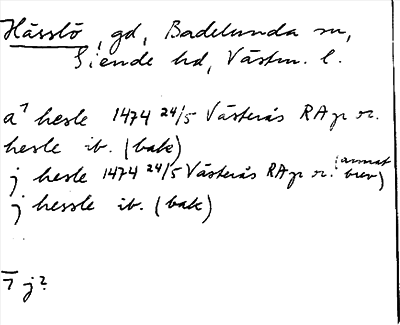 Hässlö, gd, Badelunda sn,
Siende hd, Västm. l.
a⁊ hesle 1474 24/5 Västerås RAp or.
hesle ib. (bak)
j hesle 1474 24/5 Västerås RAp or. (annat brev)
j hessle ib. (bak)
⁊ j?